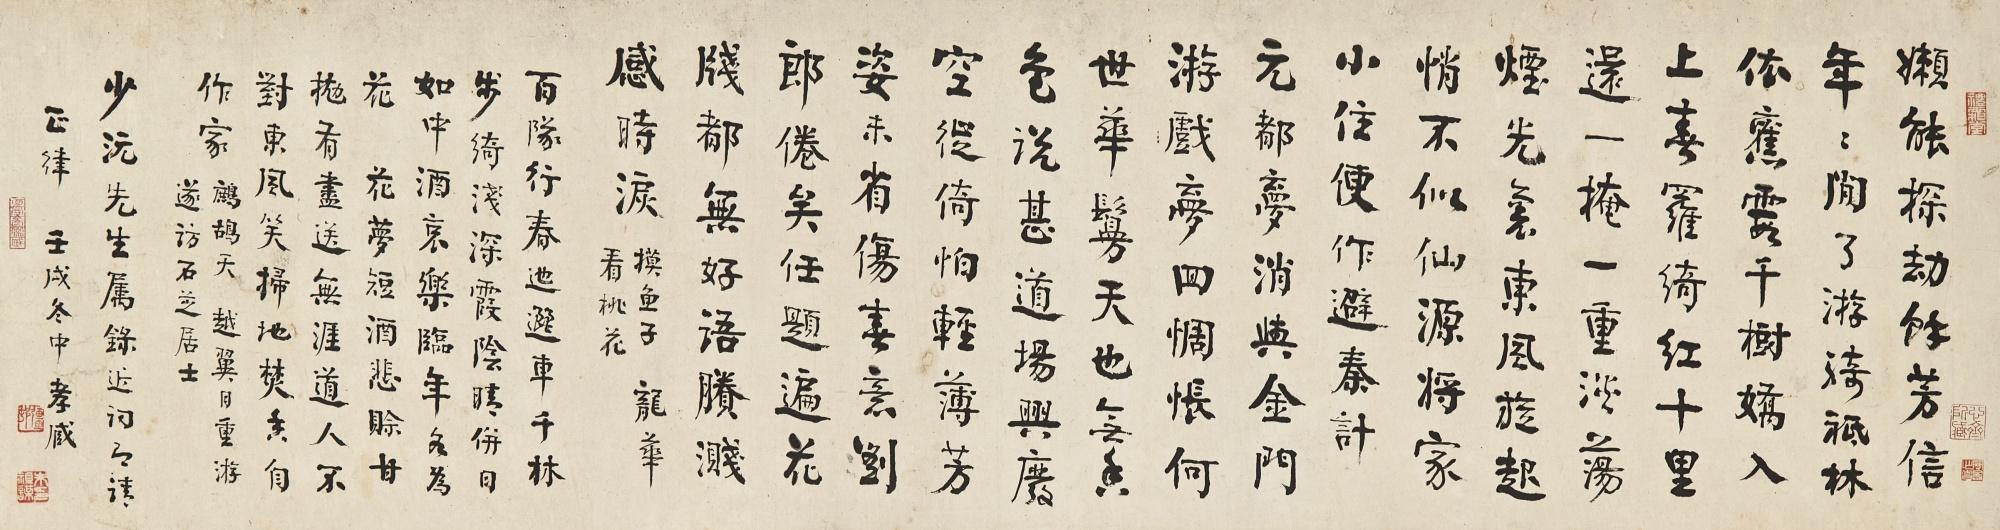 嬾能探劫餘芳信
年〻閒了游騎祇林
依舊露千樹嬌入
上春羅綺紅十里
還一掩一重淡蕩
煙光裏東風旋起
悄不似仙源將家
小住便作避秦計
元都夢消與金門
游戲夢回惆悵何
世華鬘天也無香
色說甚道場興廢
空從倚怕輕薄芳
姿未省傷春意劉
郎倦矣任題遍花
牋都無好語賸濺
感時淚 摸魚子 龍華
看桃花
百隊行春迤邐車千林
步綺淺深霞陰晴併日
如中酒哀樂臨年各為
花 花夢短酒悲賒甘
拋有盡送無涯道人不
對東風笑掃地焚香自
作家 鷓鴣天 越翼日重游
遂訪石芝居士
少沅先生屬錄近詞即請
正律 壬戌冬中 孝臧